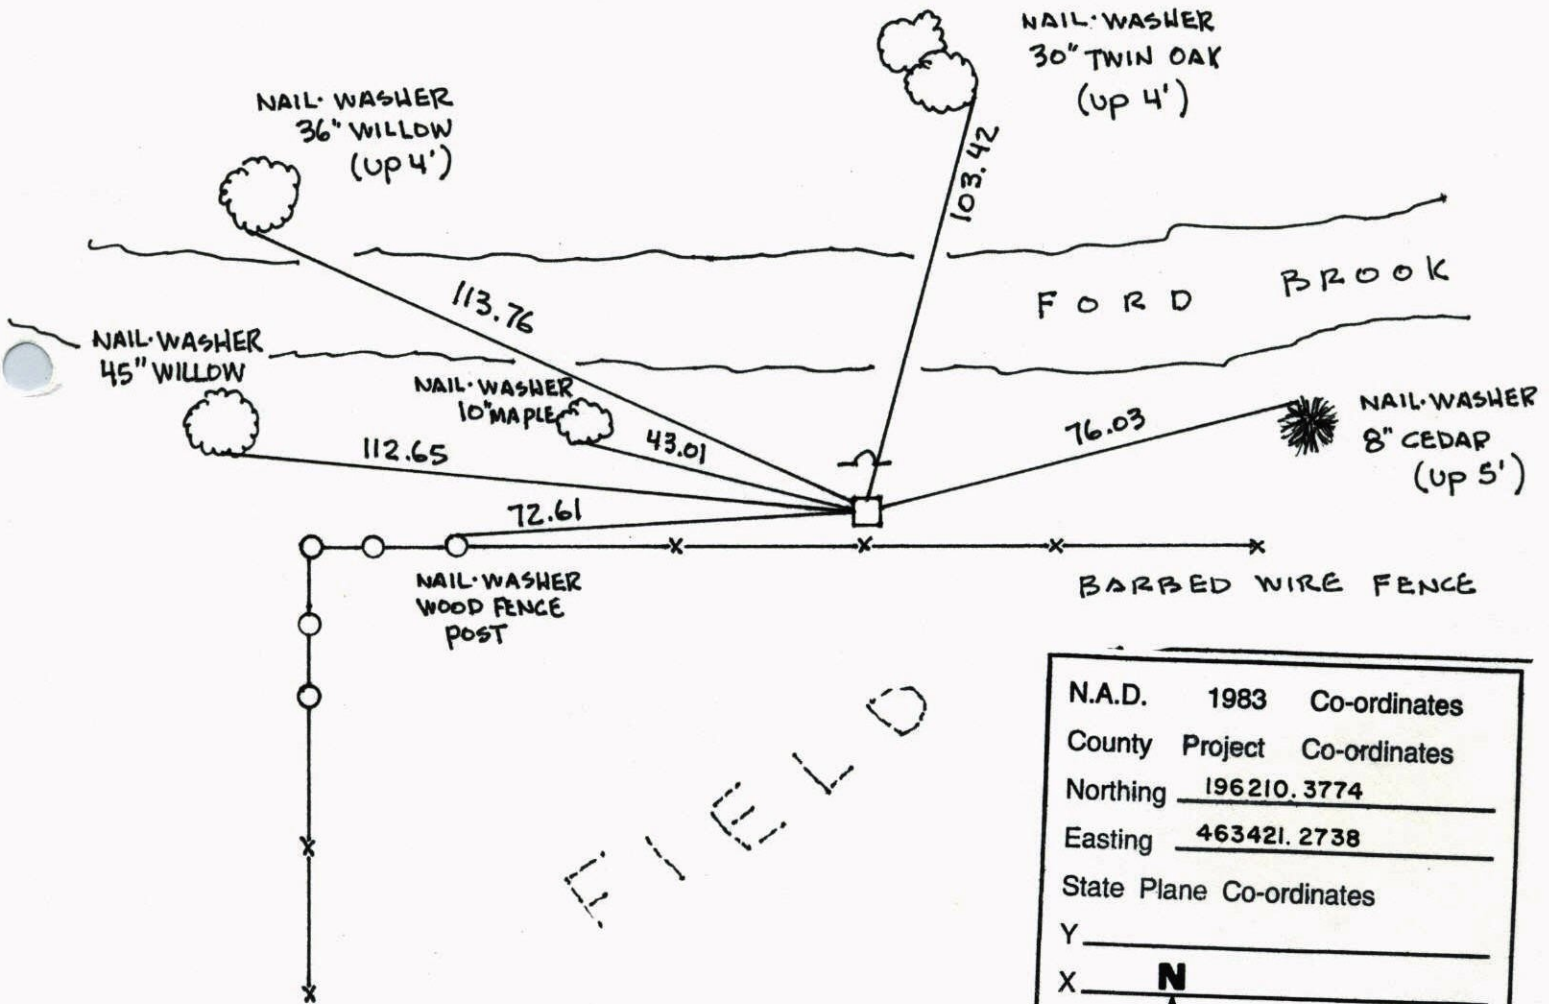 NAIL·WASHER
30" TWIN OAK
(UP 4')
NAIL·WASHER
36" WILLOW
(UP 4')
103.42
FORD BROOK
113.76
NAIL·WASHER
45" WILLOW
NAIL·WASHER
10" MAPLE
43.01
76.03
NAIL·WASHER
8" CEDAR
(UP 5')
112.65
72.61
NAIL·WASHER
WOOD FENCE
POST
BARBED WIRE FENCE
FIELD
N.A.D. 1983 Co-ordinates
County Project Co-ordinates
Northing 196210.3774
Easting 463421.2738
State Plane Co-ordinates
Y
X
N